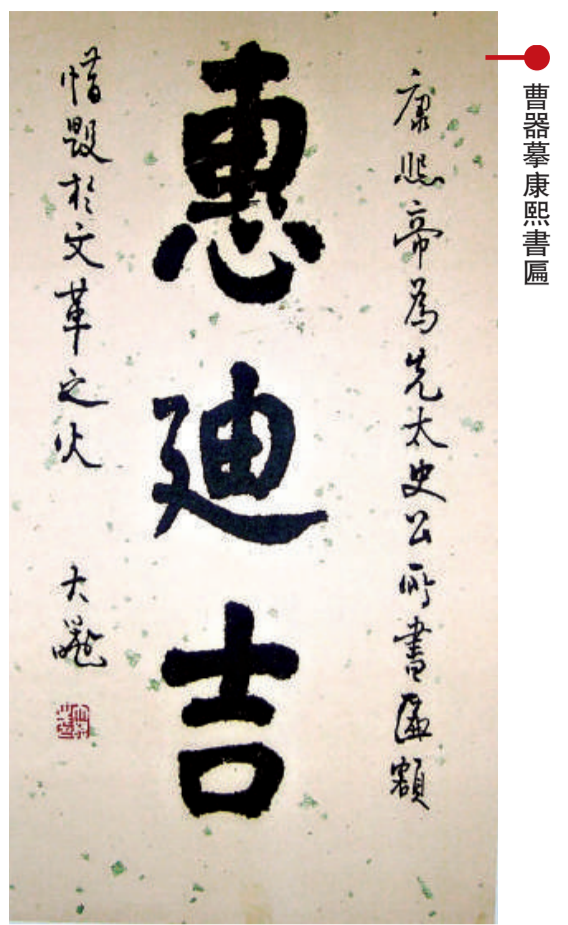 曹器摹康熙書匾
康熙帝為先太史公所書匾額
惠廸吉
惜毀於文革之火
大